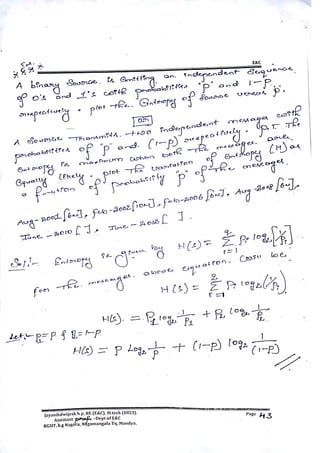 E&C
A binary Source is Emitting an independent Sequence
of 0's and 1's with probabilities 'p' and 1-p
respectively. plot the Entropy of source versus 'p'.
[OR]
A Source Transmits two independent messages with
probabilities of 'p' and (1-p) respectively. P.T The
Entropy is maximum when both the messages are
Equally likely. plot the variation of Entropy (H) as
a function of probability 'p' of the messages.
Aug-2001 [6M], feb-2002 [10M], feb-2006 [6M], Aug-2008 [6M],
June-2010 [ ], June-
Sol:- Entropy is given by H(s) = Σ Pi log2 [1/Pi]
for the messages above equation can be
H(s) = Σ Pi log2 (1/Pi)
H(s) = P1 log2 1/P1 + P2 log2 1/P2
Let:- P1=P & P2=1-P
H(s) = P Log2 1/P + (1-P) log2 1/(1-P)
Jayanthdwijesh h p, BE (E&C), M.tech (DECS).
Assistant -Dept of E&C
BGSIT, b.g Nagara, Nagamangala Tq, Mandya.
Page 43